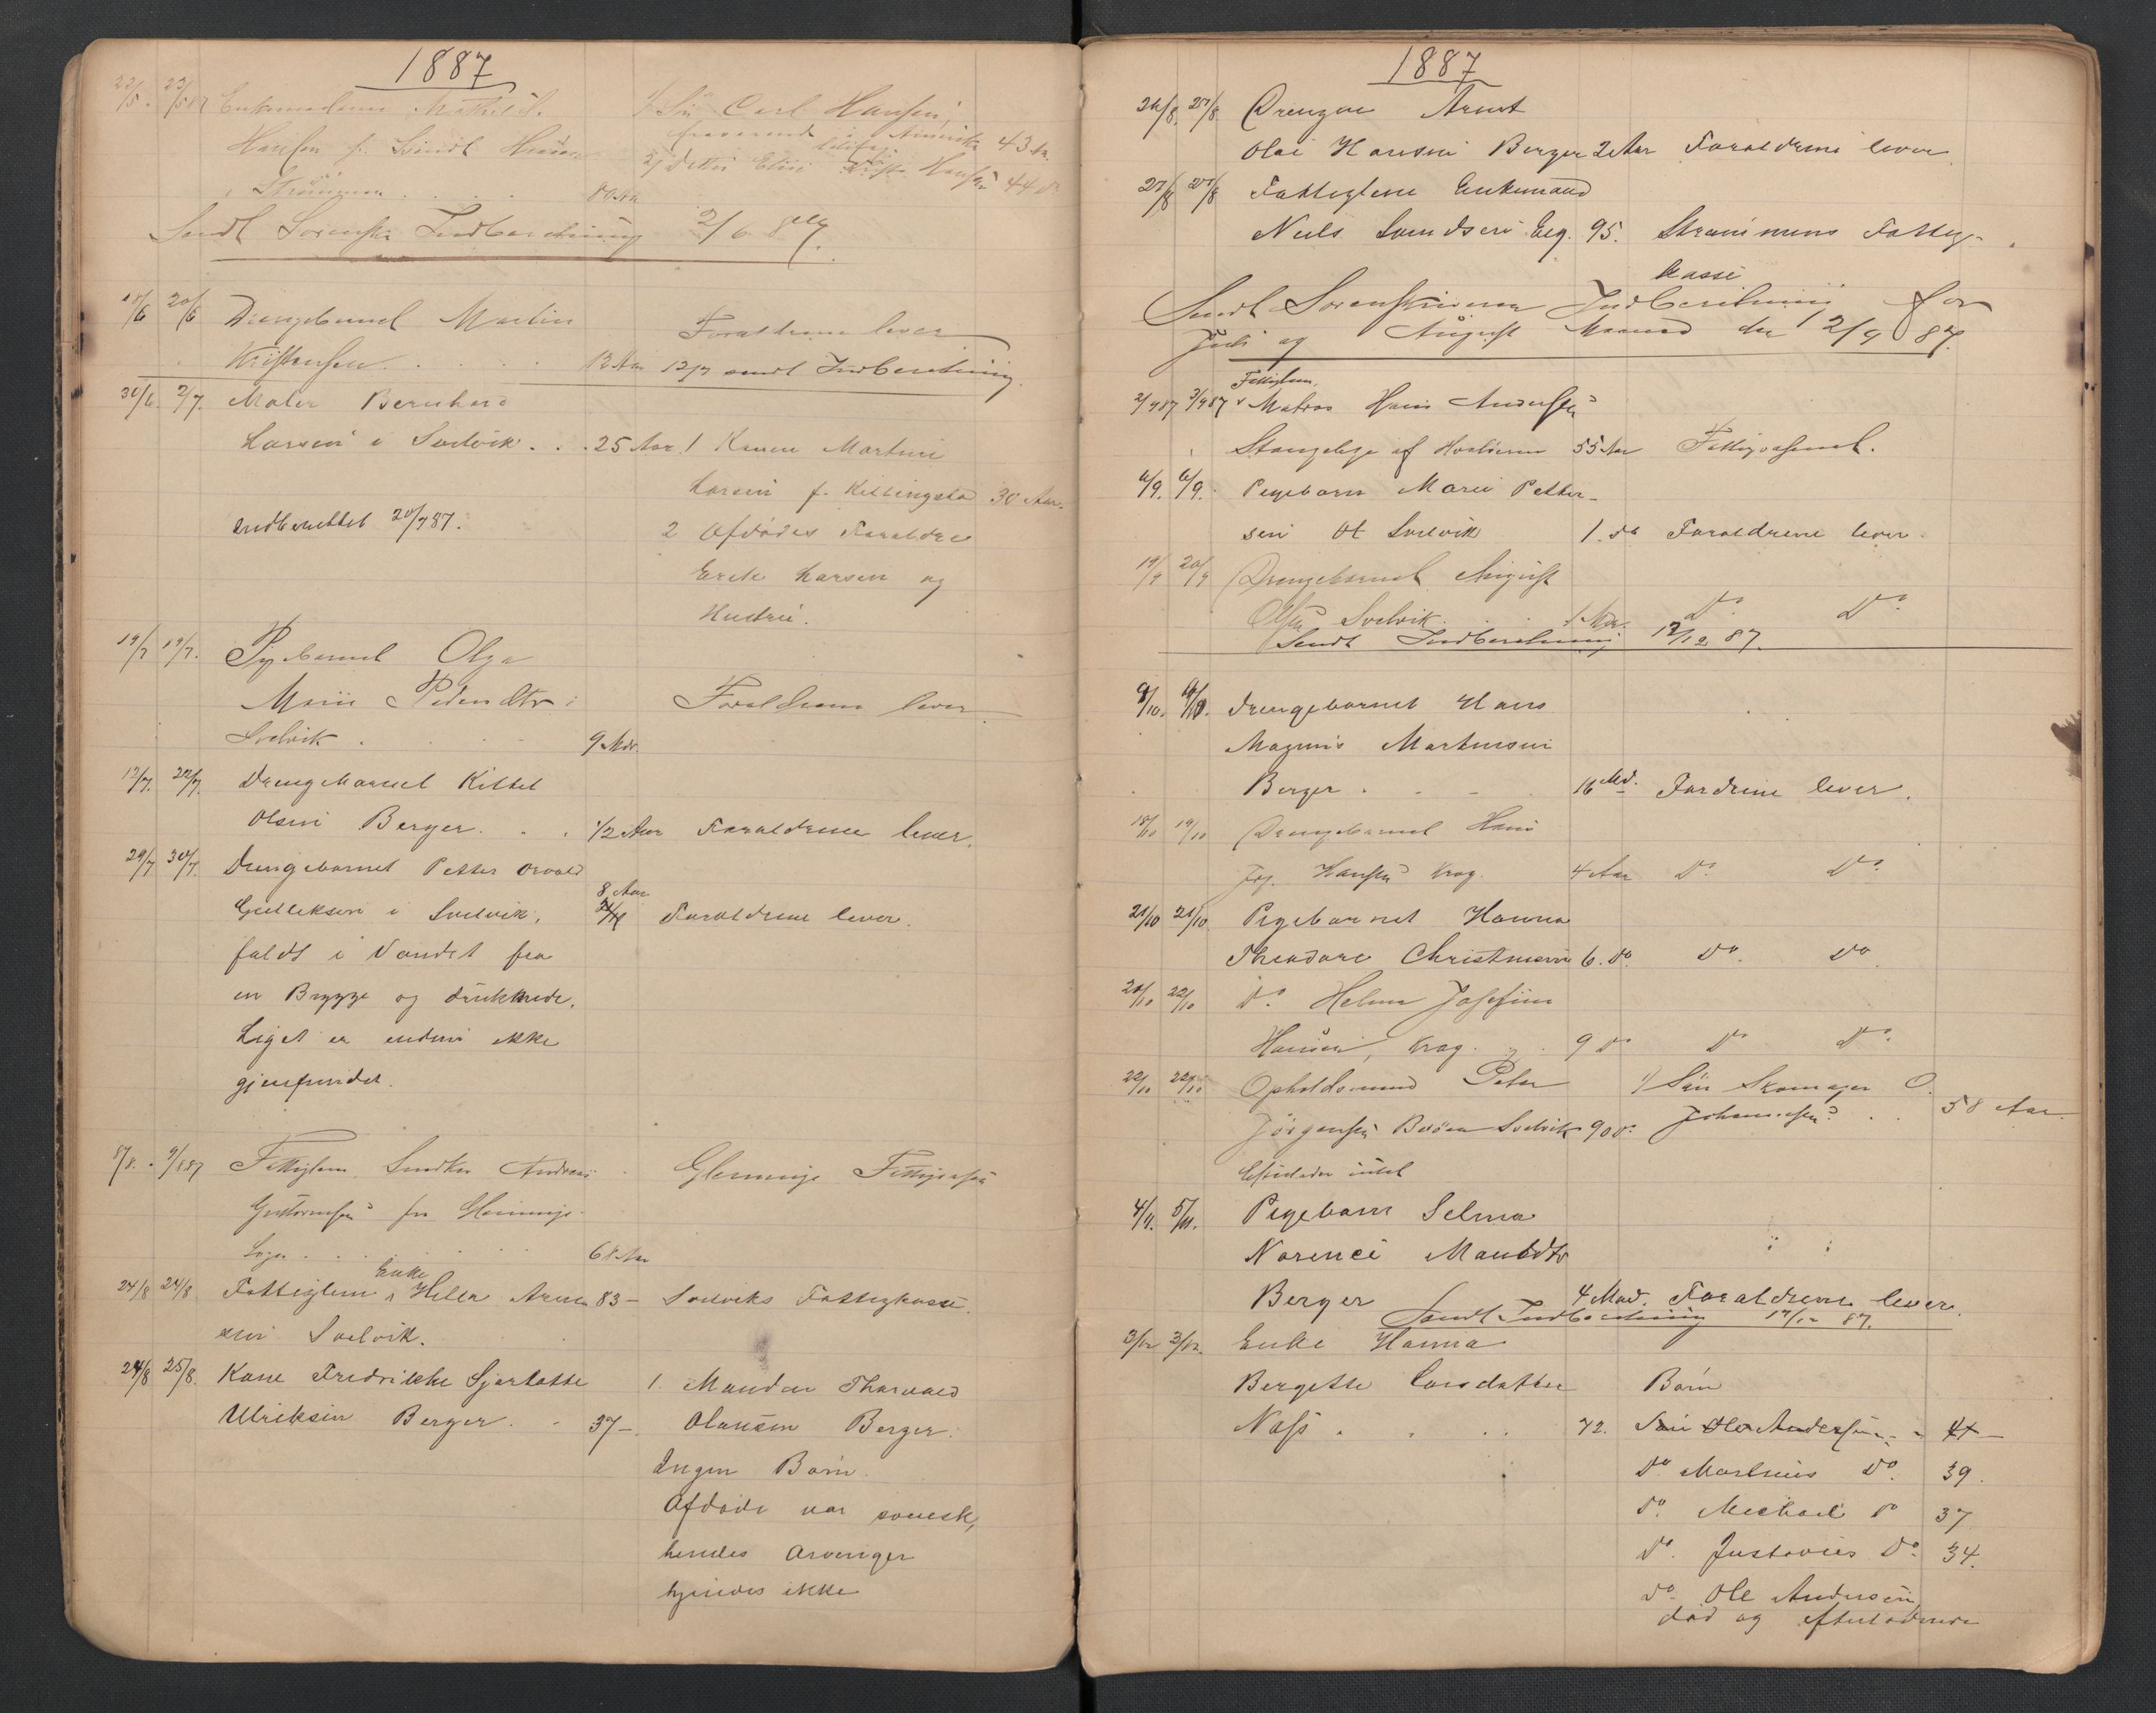 1887
22/5. 23/5 87 Enkemadam Mathilde 1/ Sön Carl Hansen,
Hansen f. Svindt fraværende i Amerika 43 Aar
i Strømmen . . . 80 Aar 2/ Datter Elise Hansen 44 do
Sendt Sorenskr. Indberetning 2/6 87.
18/6 20/6 Drengebarnet Martin Forældrene lever
Kristensen . . . . 12/7 sendt Indberetning.
30/6. 2/7. Maler Bernhard
Larsen i Svelvik . . . 25 Aar. 1 Karen Martine
Larsen f. Kellingstad 30 Aar.
Indberettet 20/7 87. 2 Afdødes Forældre
Erik Larsen og
Hustru.
19/7 19/7. Pigebarnet Olga
Marie Pedersdtr i Forældrene lever.
Svelvik . . . 9 Mdr.
12/7. 22/7. Drengebarnet Kittel
Olsen Berger. . . 1/2 Aar Forældrene lever.
29/7 30/7. Drengebarnet Petter Orvald
8 Aar
Gulleksen i Svelvik, Forældrene lever.
faldt i Vandet fra
en Brygge og druknede.
Liget er endnu ikke
gjenfundet.
8/8. 9/8 87 Fattiglem Snedker Andreas Glemminge Fattigvæsen
Guttormsen fra Glemminge
. . . 68 Aar
Enke
24/8 24/8 Fattiglem Helle Aren 83 — Svelviks Fattigkasse.
sen Svelvik.
24/8 25/8. Kone Fredrikke Sjarlotte 1. Manden Thorvald
Ulriksen Berger. . 37 —. Olaussen Berger.
Ingen Børn.
Afdøde var svensk,
hendes Arvinger
kjendes ikke
1887
26/8. 27/8. Drengen Arent
Olai Hansen Berger 2 Aar Forældrene lever.
27/8 27/8 Fattiglem Enkemand
Niels Svendsen Eeg. 95. Strømmens Fattig-
kasse
Sendt Sorenskriveren Indberetning for
Juli og August Maaned den 2/9 87.
Fattiglem
2/9 87 3/9 87 Matros Hans Andersen
Stangebye af Hvaløerne 55 Aar Fattigvæsenet.
6/9. 6/9. Pigebarn Marie Petter-
sen Svelvik 1. do Forældrene lever.
19/9 20/9 Drengebarnet August
Olsen Svelvik . . 1 Mdr. Do. Do.
Sendt Indberetning 12/12 87.
8/10. 9/10. Drengebarnet Hans
Magnus Martinsen
Berger . . . 16 Md. Fordrene lever.
18/10 19/10 Drengebarnet Hans
Joh. Hansen Krog. 4 Aar Do. Do.
21/10 21/10 Pigebarnet Hanna
Theodore Christensen 6. do. do. do.
20/10 22/10 Do. Helma Josefine
Hansen, Krog. . . 9 do do do.
22/10 22/10 Opholdsmand Peter 1/ Sön Skomager O.
Jörgensen Svelvik 90 do. Johannesen . . 58 Aar.
Efterlader intet
4/11. 5/11. Pigebarn Selma
Norence
Berger 4 Mdr. Forældrene lever.
Sendt Indberetning 17/12 87.
3/12 3/12. Enke Hanna
Bergette Larsdatter Børn
Næss . . . 72. Sön Ole Andersen 41 —
do. Martinius do. 39.
do. Michael do 37
do. Justovius do. 34.
do. Ole Andersen
død og efterladende